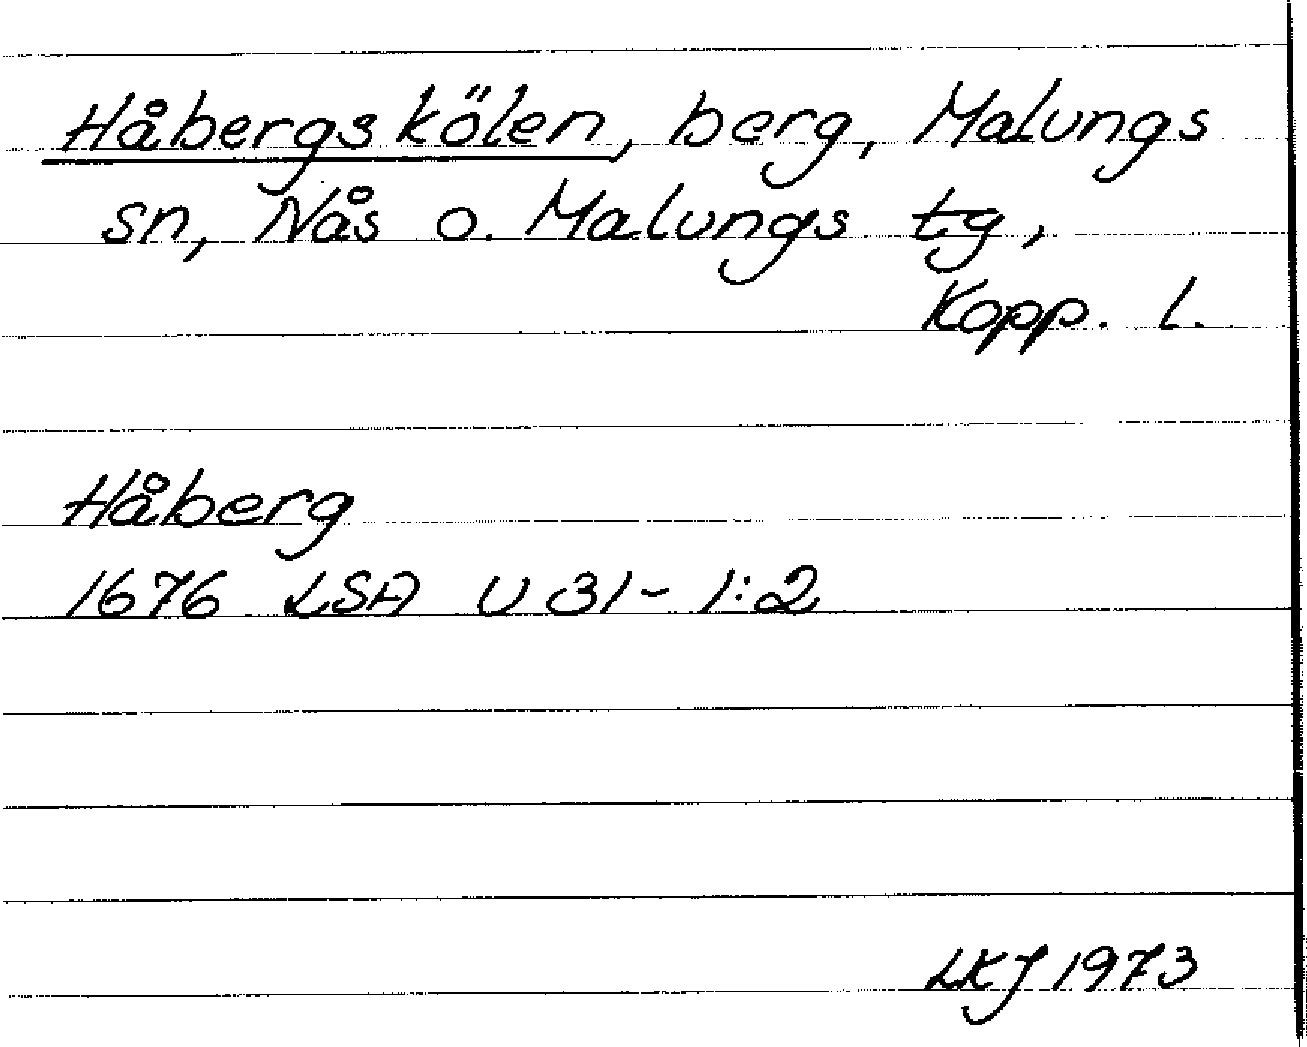 Håbergskölen, berg, Malungs
sn, Nås o. Malungs tg,
Kopp. l.
Håberg
1676 LSA U 31- 1:2
LKJ 1973